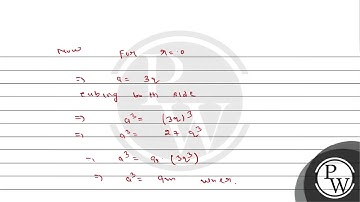 Now For r=0
⇒ a = 3q
cubing both side
⇒ a³ = (3q)³
⇒ a³ = 27 q³
⇒ a³ = 9 (3q³)
⇒ a³ = 9m wher.
PW